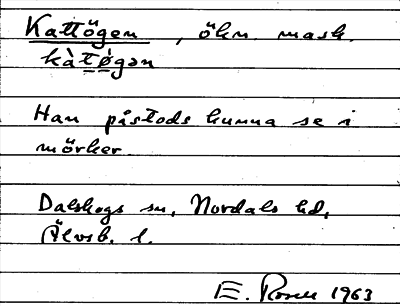 Kattögen, ökn. mask.
kàtø̀gən
Han påstods kunna se i
mörker.
Dalskogs sn, Nordals hd,
Älvsb. l.
E. Rosén 1963